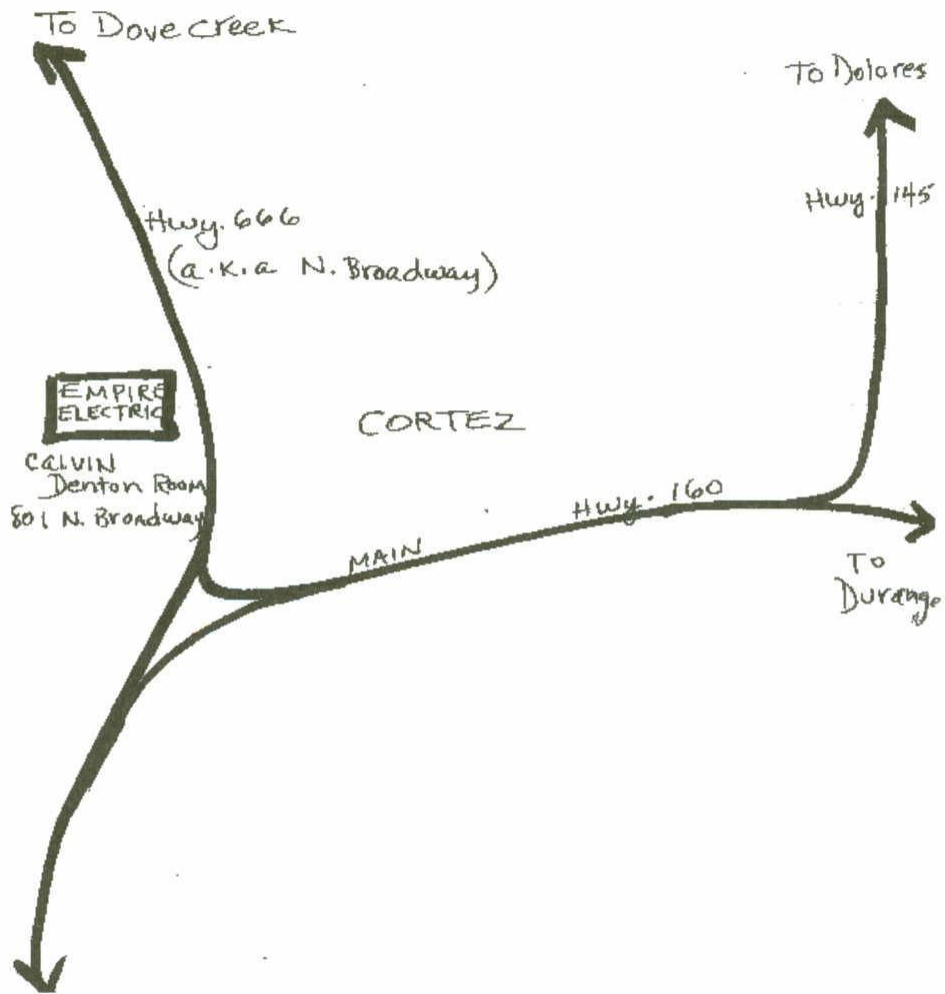 To Dove Creek
To Dolores
Hwy. 145
Hwy. 666
(a.k.a N. Broadway)
EMPIRE
ELECTRIC
CORTEZ
CALVIN
Denton Room
801 N. Broadway
Hwy. 160
MAIN
To
Durango